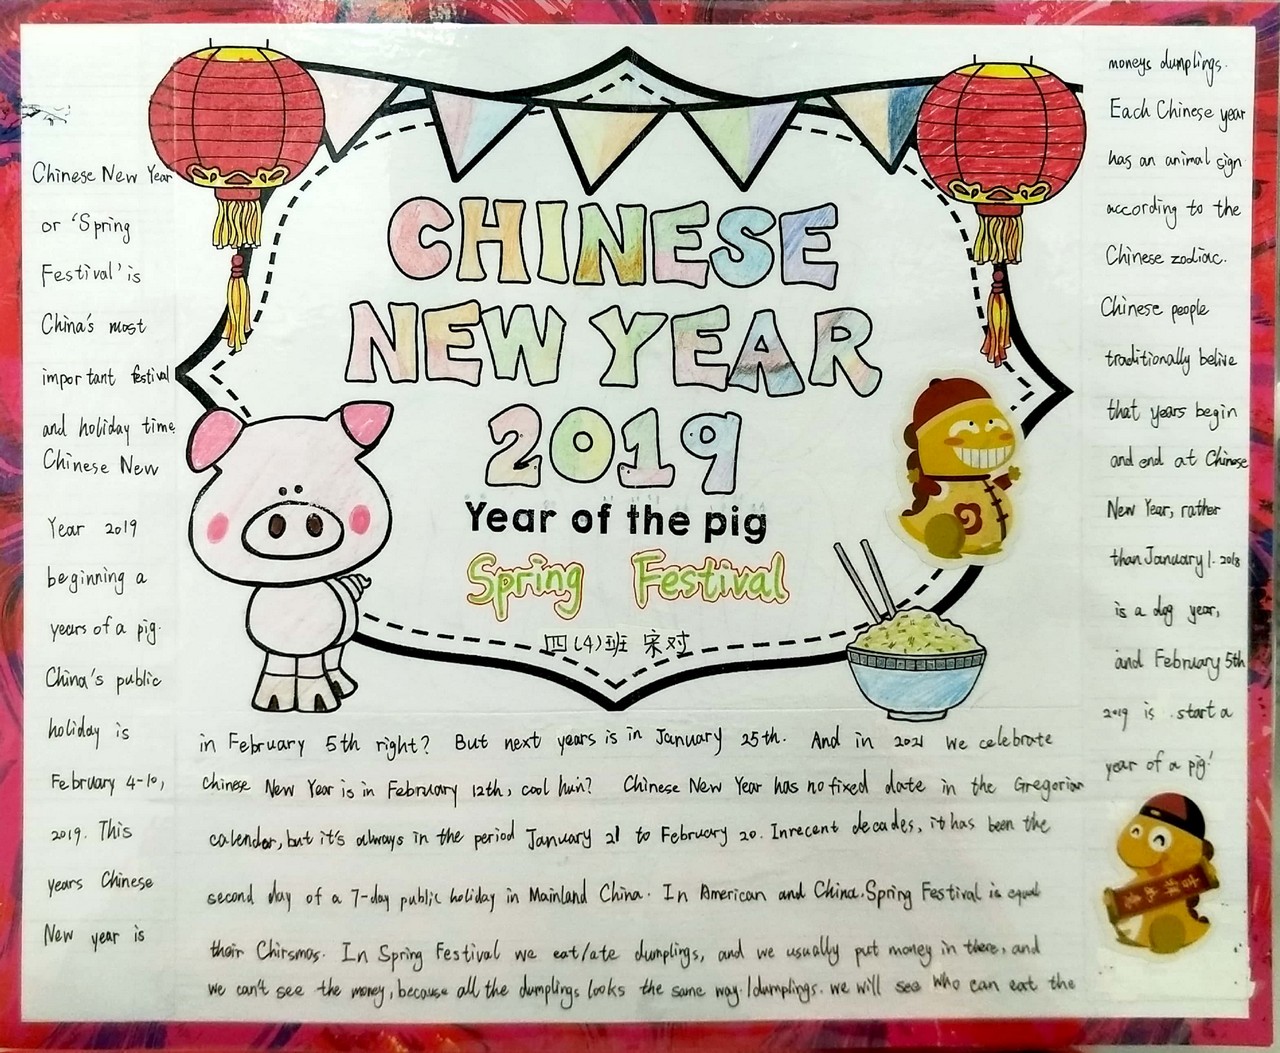 CHINESE
NEW YEAR
2019
Year of the pig
Spring Festival
四(4)班 宋对
Chinese New Year
or 'Spring
Festival' is
China's most
important festival
and holiday time
Chinese New
Year 2019
beginning a
years of a pig.
China's public
holiday is
February 4-10,
2019. This
years Chinese
New year is
in February 5th right? But next years is in January 25th. And in 2021 We celebrate
Chinese New Year is in February 12th, cool huh? Chinese New Year has no fixed date in the Gregorian
calendar, but it's always in the period January 21 to February 20. Inrecent decades, it has been the
second day of a 7-day public holiday in Mainland China. In American and China. Spring Festival is equal
their Chirsmas. In Spring Festival we eat/ate dumplings, and we usually put money in there, and
we can't see the money, because all the dumplings looks the same way/dumplings. we will see Who can eat the
moneys dumplings.
Each Chinese year
has an animal sign
according to the
Chinese zodiac.
Chinese people
traditionally belive
that years begin
and end at Chinese
New Year, rather
than January 1. 2018
is a dog year,
and February 5th
2019 is start a
year of a pig!